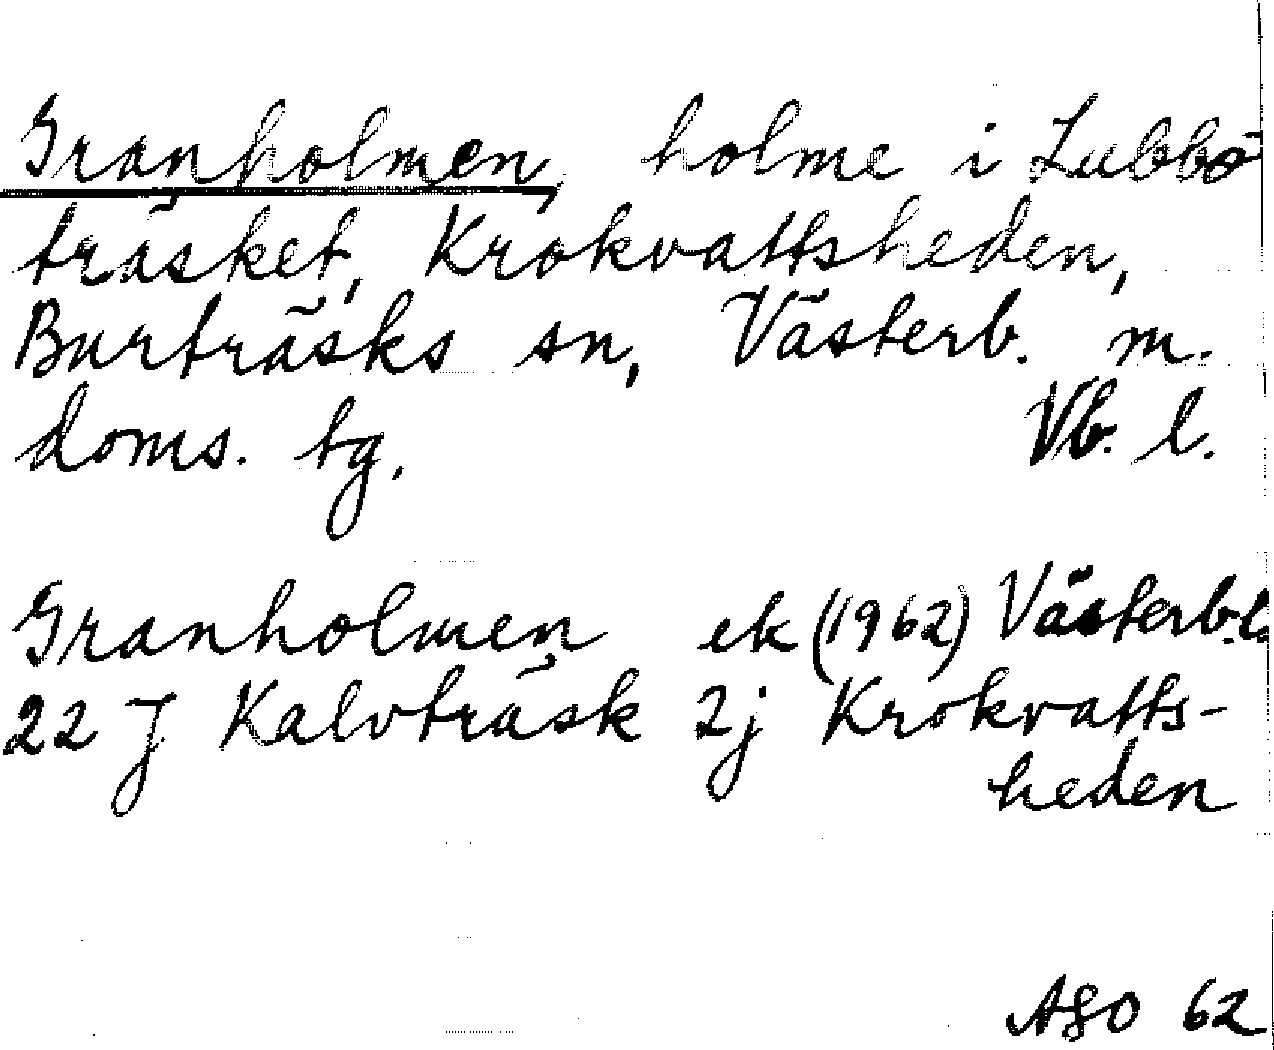 Granholmen, holme i Lubbo
träsket, Krokvattsheden,
Burträsks sn, Västerb. m.
doms. tg. Vb. l.
Granholmen ek (1962) Västerb.l.
22 J Kalvträsk 2j Krokvatts-
heden
ÅGO 62